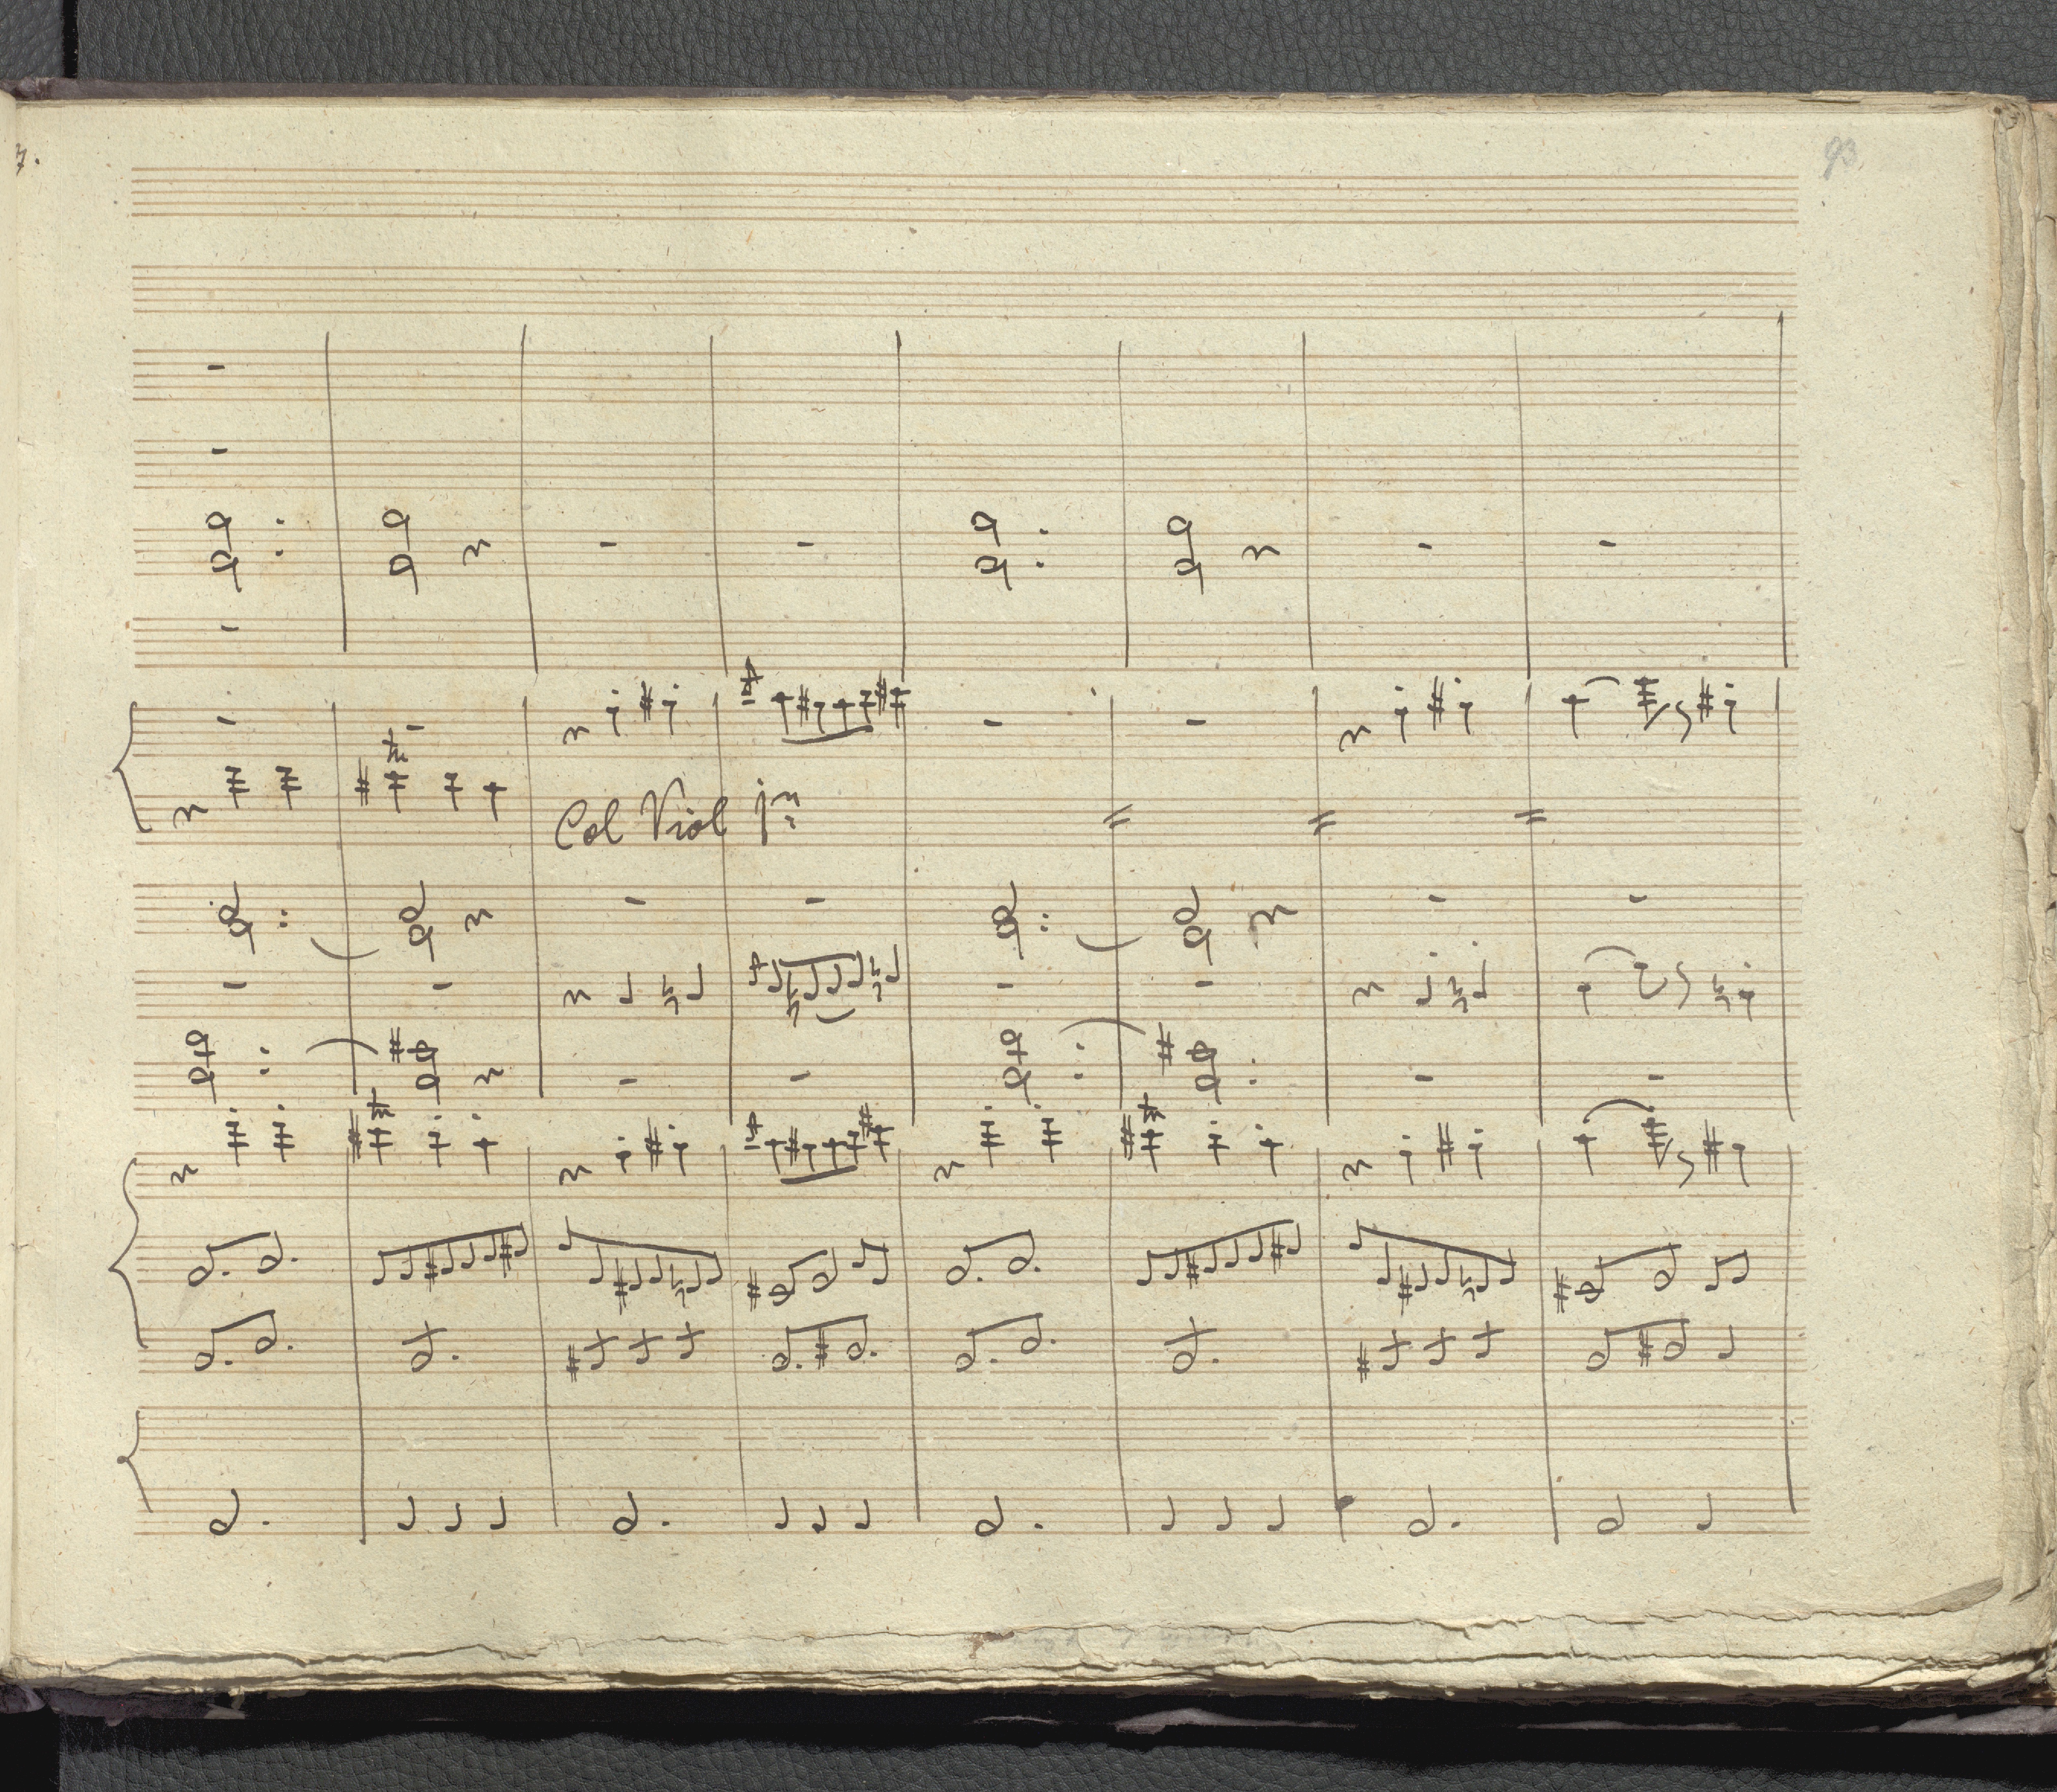 93
Col Viol 1mo